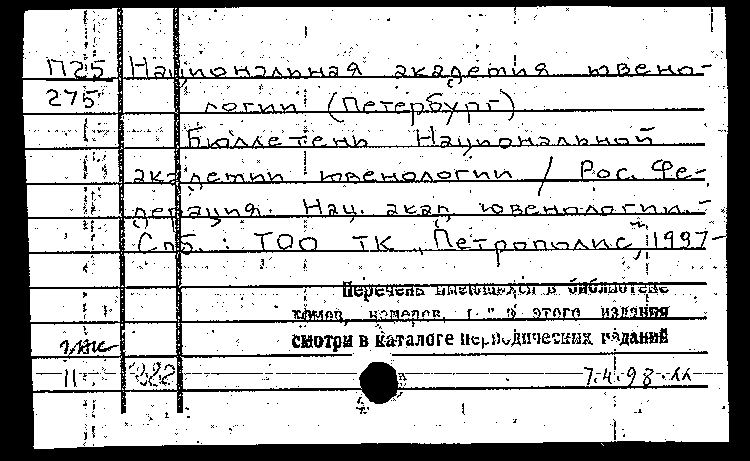 П25 Национальная академия ювено-
275 логии (Петербург)
Бюллетень Национальной
академии ювенологии / Рос. Фе-
дерация. Нац. акад. ювенологии. -
Спб. : ТОО ТК "Петрополис", 1997-
Перечень имеющихся в библиотеке
томов, номеров, и этого издания
смотри в каталоге периодических изданий
11 7.4.98